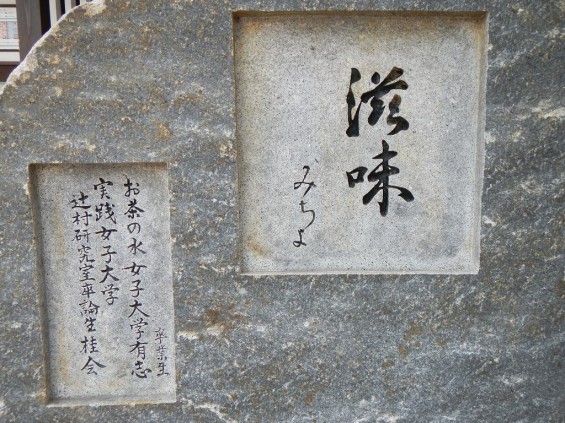 滋味
みちよ
お茶の水女子大学有志
卒業生
実践女子大学
辻村研究室卒論生桂会